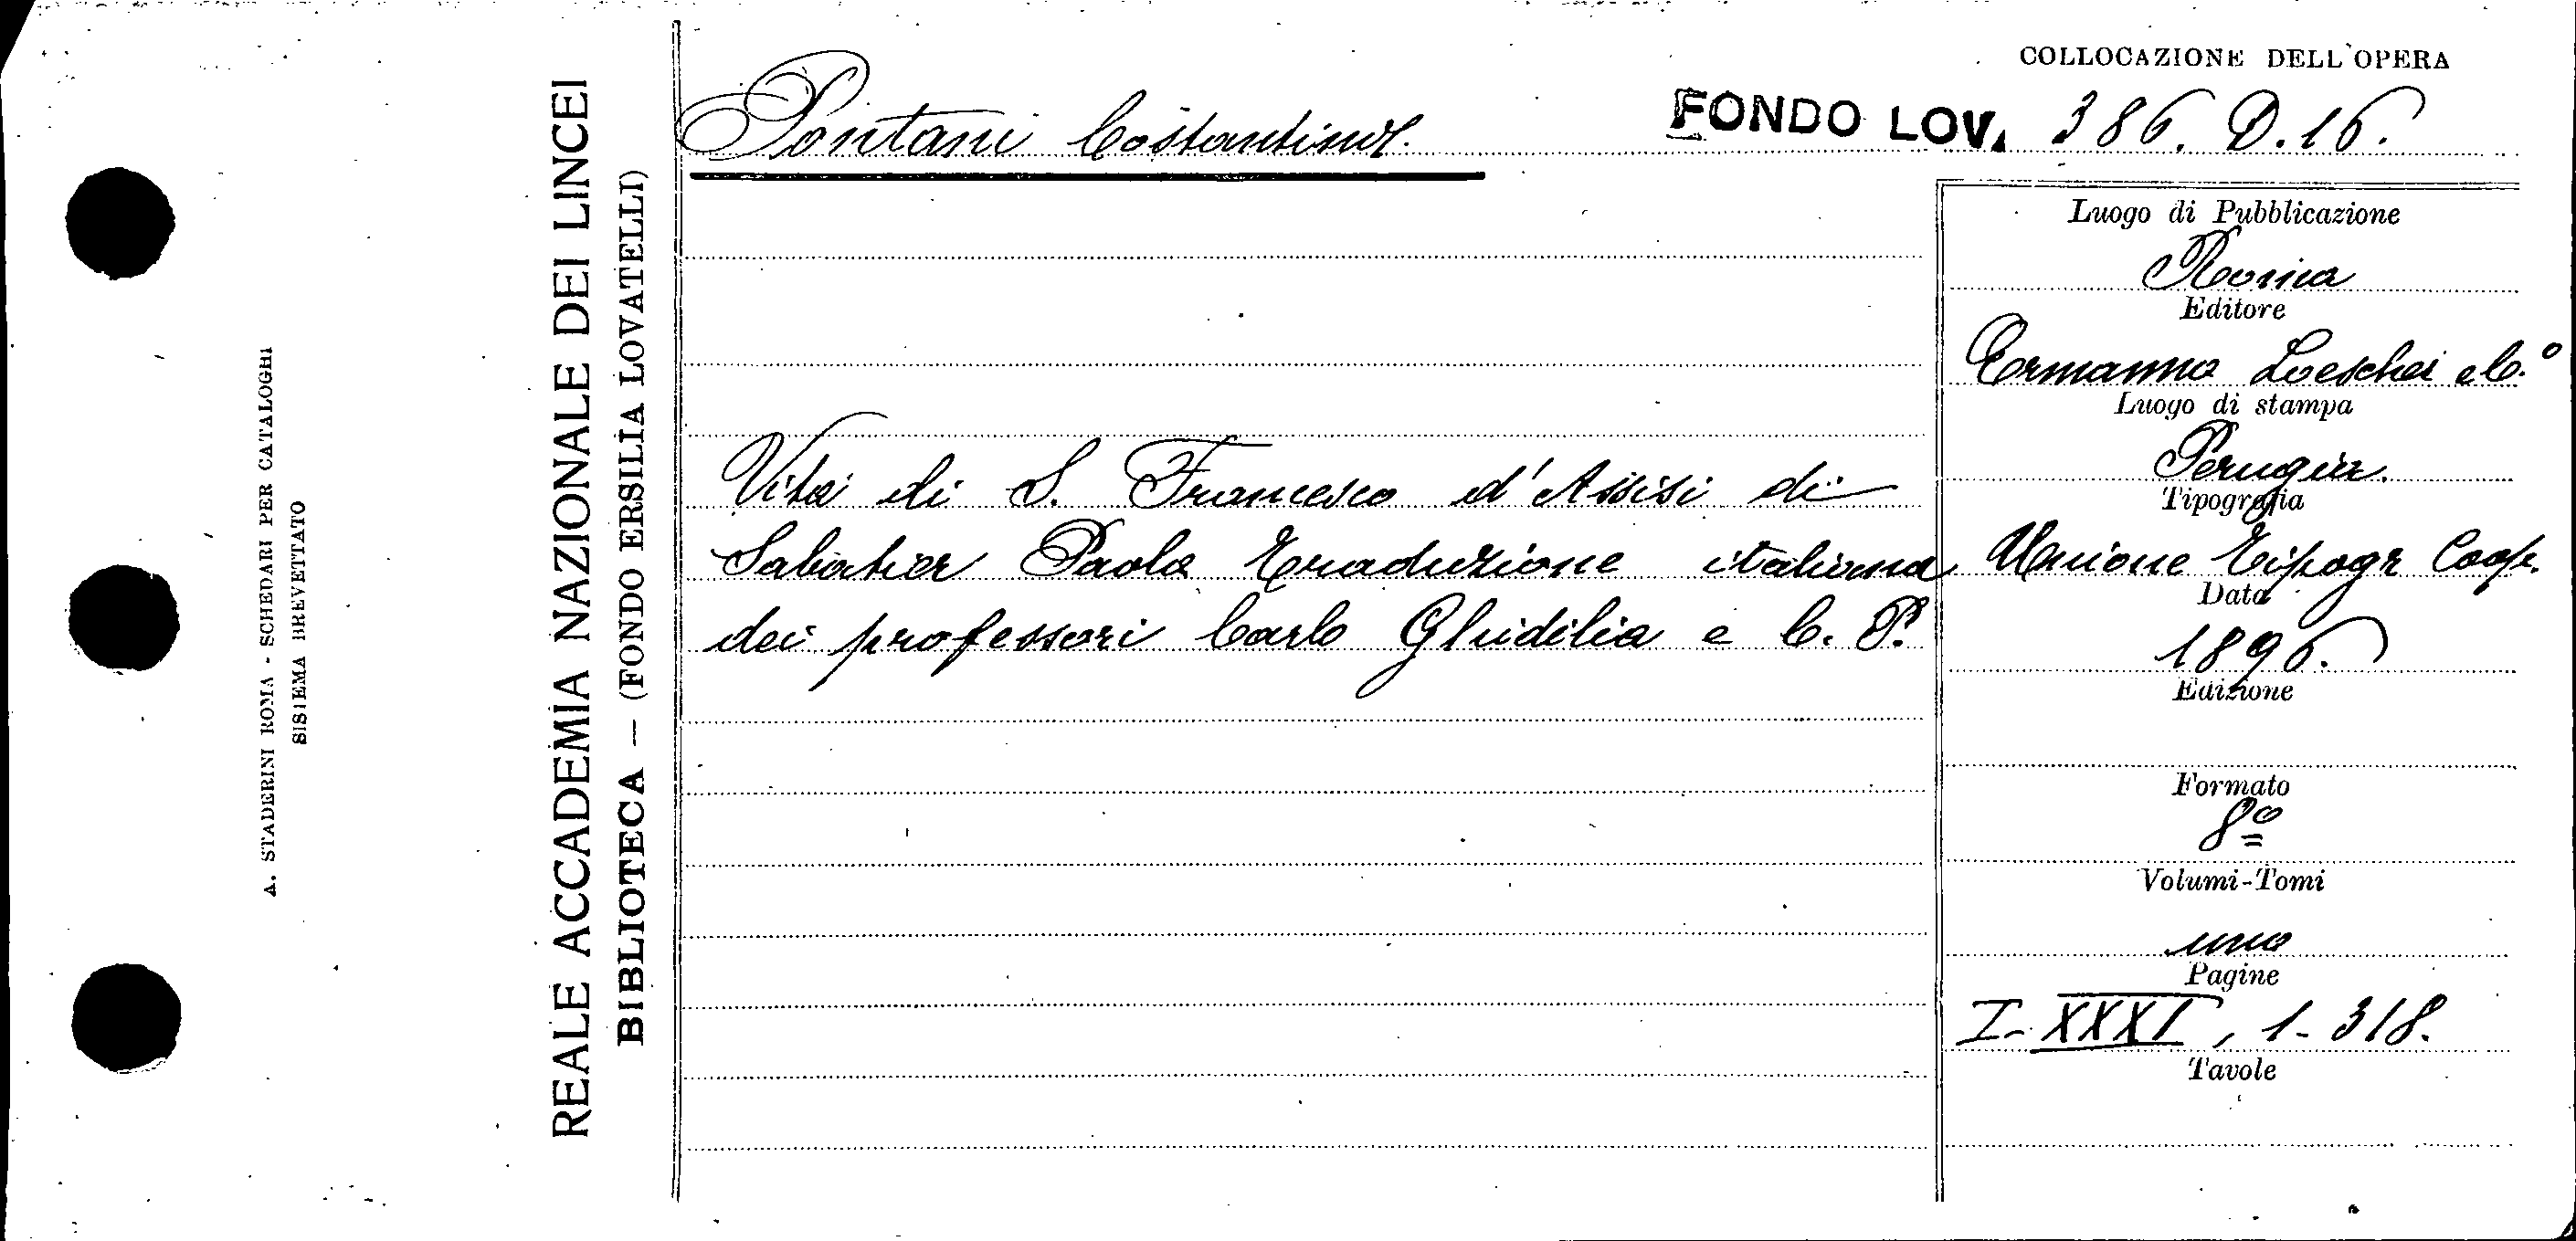 COLLOCAZIONE DELL'OPERA
Pontani Costantino.
FONDO LOV. 386. D.16.
REALE ACCADEMIA NAZIONALE DEI LINCEI
BIBLIOTECA — (FONDO ERSILIA LOVATELLI)
A. STADERINI ROMA - SCHEDARI PER CATALOGHI
SISTEMA BREVETTATO
Vita di S. Francesco d'Assisi di
Sabatier Paolo Traduzione italiana
dei professori Carlo Ghidilia e C. P.
Luogo di Pubblicazione
Roma
Editore
Ermanno Loescher e C.º
Luogo di stampa
Perugia.
Tipografia
Unione Tipogr Coop.
Data
1896.
Edizione
Formato
8º
Volumi-Tomi
uno
Pagine
I-XXXI, 1-318.
Tavole